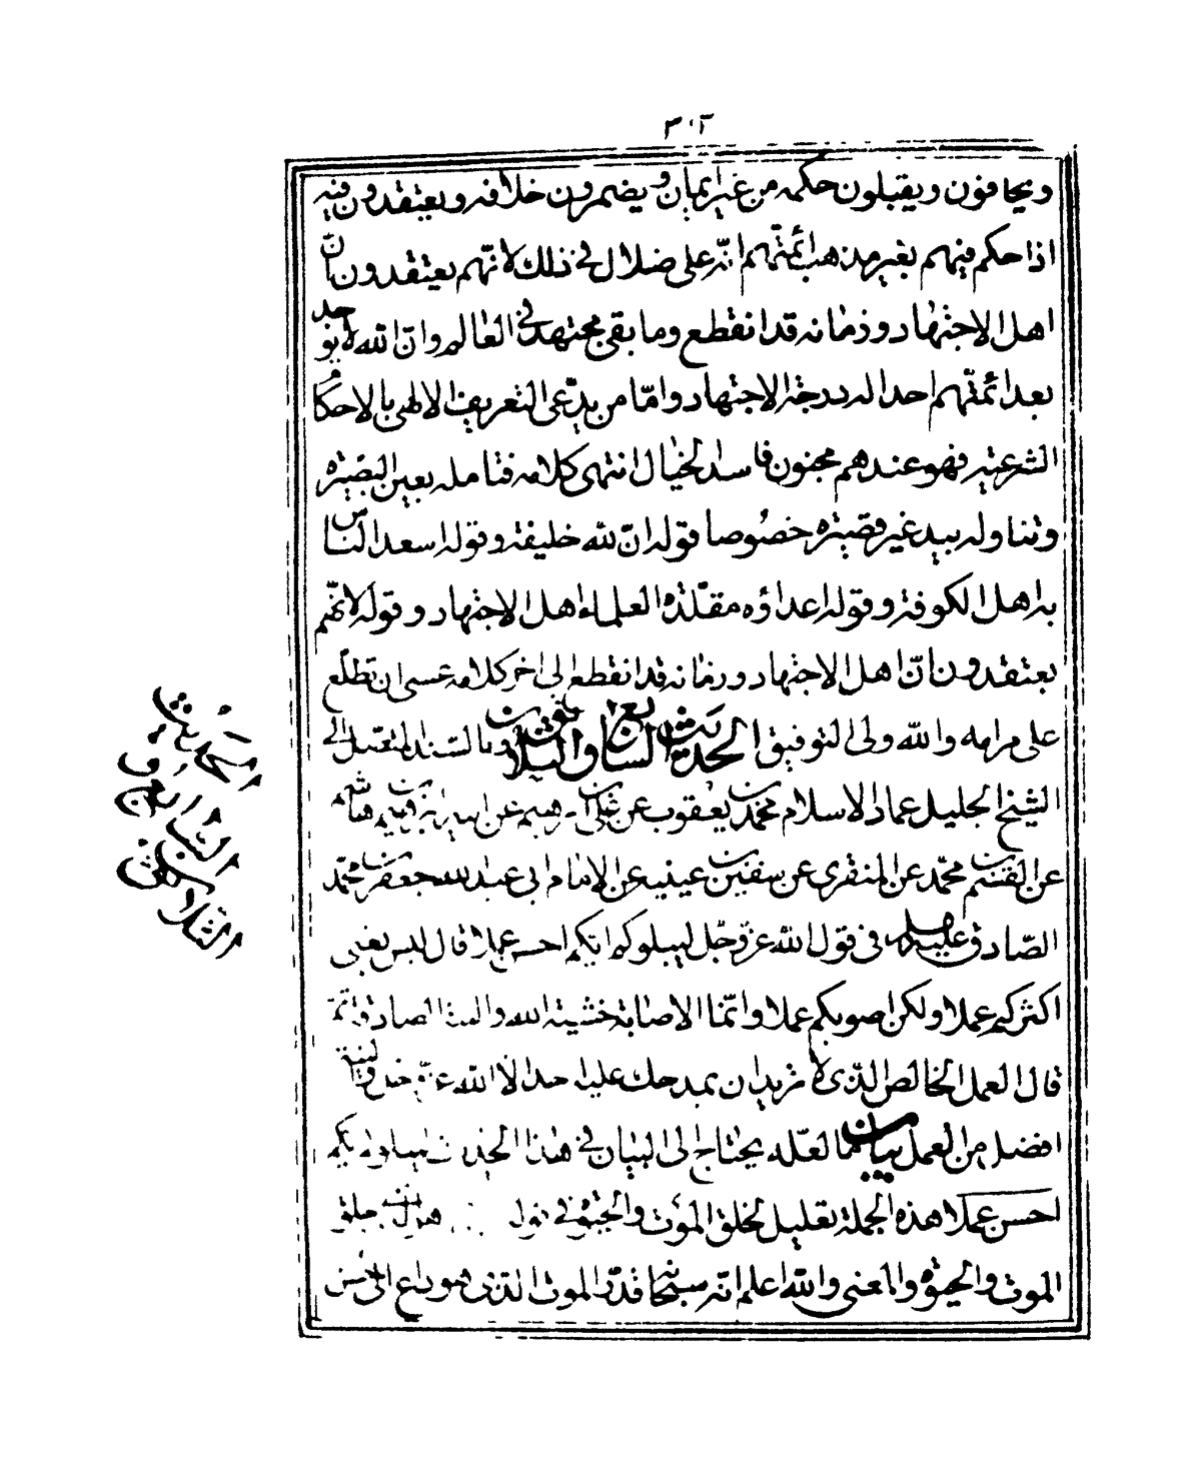 ٣٠٢
ويخافون ويقبلون حكمه من غير ايمان ويضمرون خلافه ويعتقدون فيه
اذا حكم فيهم بغير مذهب ائمتهم انّه على ضلال في ذلك لانّهم يعتقدون انّ
اهل الاجتهاد وزمانه قد انقطع وما بقى مجتهد في العالم وانّ الله لا يوجد
بعد ائمّتهم احدا له درجة الاجتهاد وامّا من يدّعى التعريف الالهى بالاحكام
الشرعيّة فهو عندهم مجنون فاسد الخيال انتهى كلامه فتامله بعين البصيرة
وتناوله بيد غير قصيرة خصوصا قوله انّ لله خليفة وقوله اسعد الناس
به اهل الكوفة وقوله اعداؤه مقلّدة العلماء اهل الاجتهاد وقوله لانّهم
يعتقدون انّ اهل الاجتهاد وزمانه قد انقطع الى اخر كلامه عسى ان تطلّع
على مرامه والله ولى التوفيق الحديث السابع والثلاثون وبالسّند المتصل الى
الشيخ الجليل عماد الاسلام محمد بن يعقوب عن على بن ابرهيم عن ابيه هاشم
عن القسم بن محمّد عن المنقرى عن سفين بن عيينه عن الامام ابى عبد الله جعفر بن محمّد
الصّادق عليهما السلام في قول الله عزّ وجّل ليبلوكم ايّكم احسن عملا قال ليس يعنى
اكثركم عملا ولكن اصوبكم عملا وانّما الاصابة خشية الله والنية الصادقة ثمّ
قال العمل الخالص الذّى لا تريد ان يمدحك عليه احد الا الله عزّ وجل والنية
افضل من العمل بيان ما لعلّه يحتاج الى البيان في هذا الحديث ليبلوكم ايّكم
احسن عملا هذه الجملة تعليل لخلق الموت والحيوة في قوله خلق
الموت والحيوة والمعنى والله اعلم انّه سبحانه قدّر الموت الذى هو داع الى حسن
الحديث
السّابع و
الثلاثون